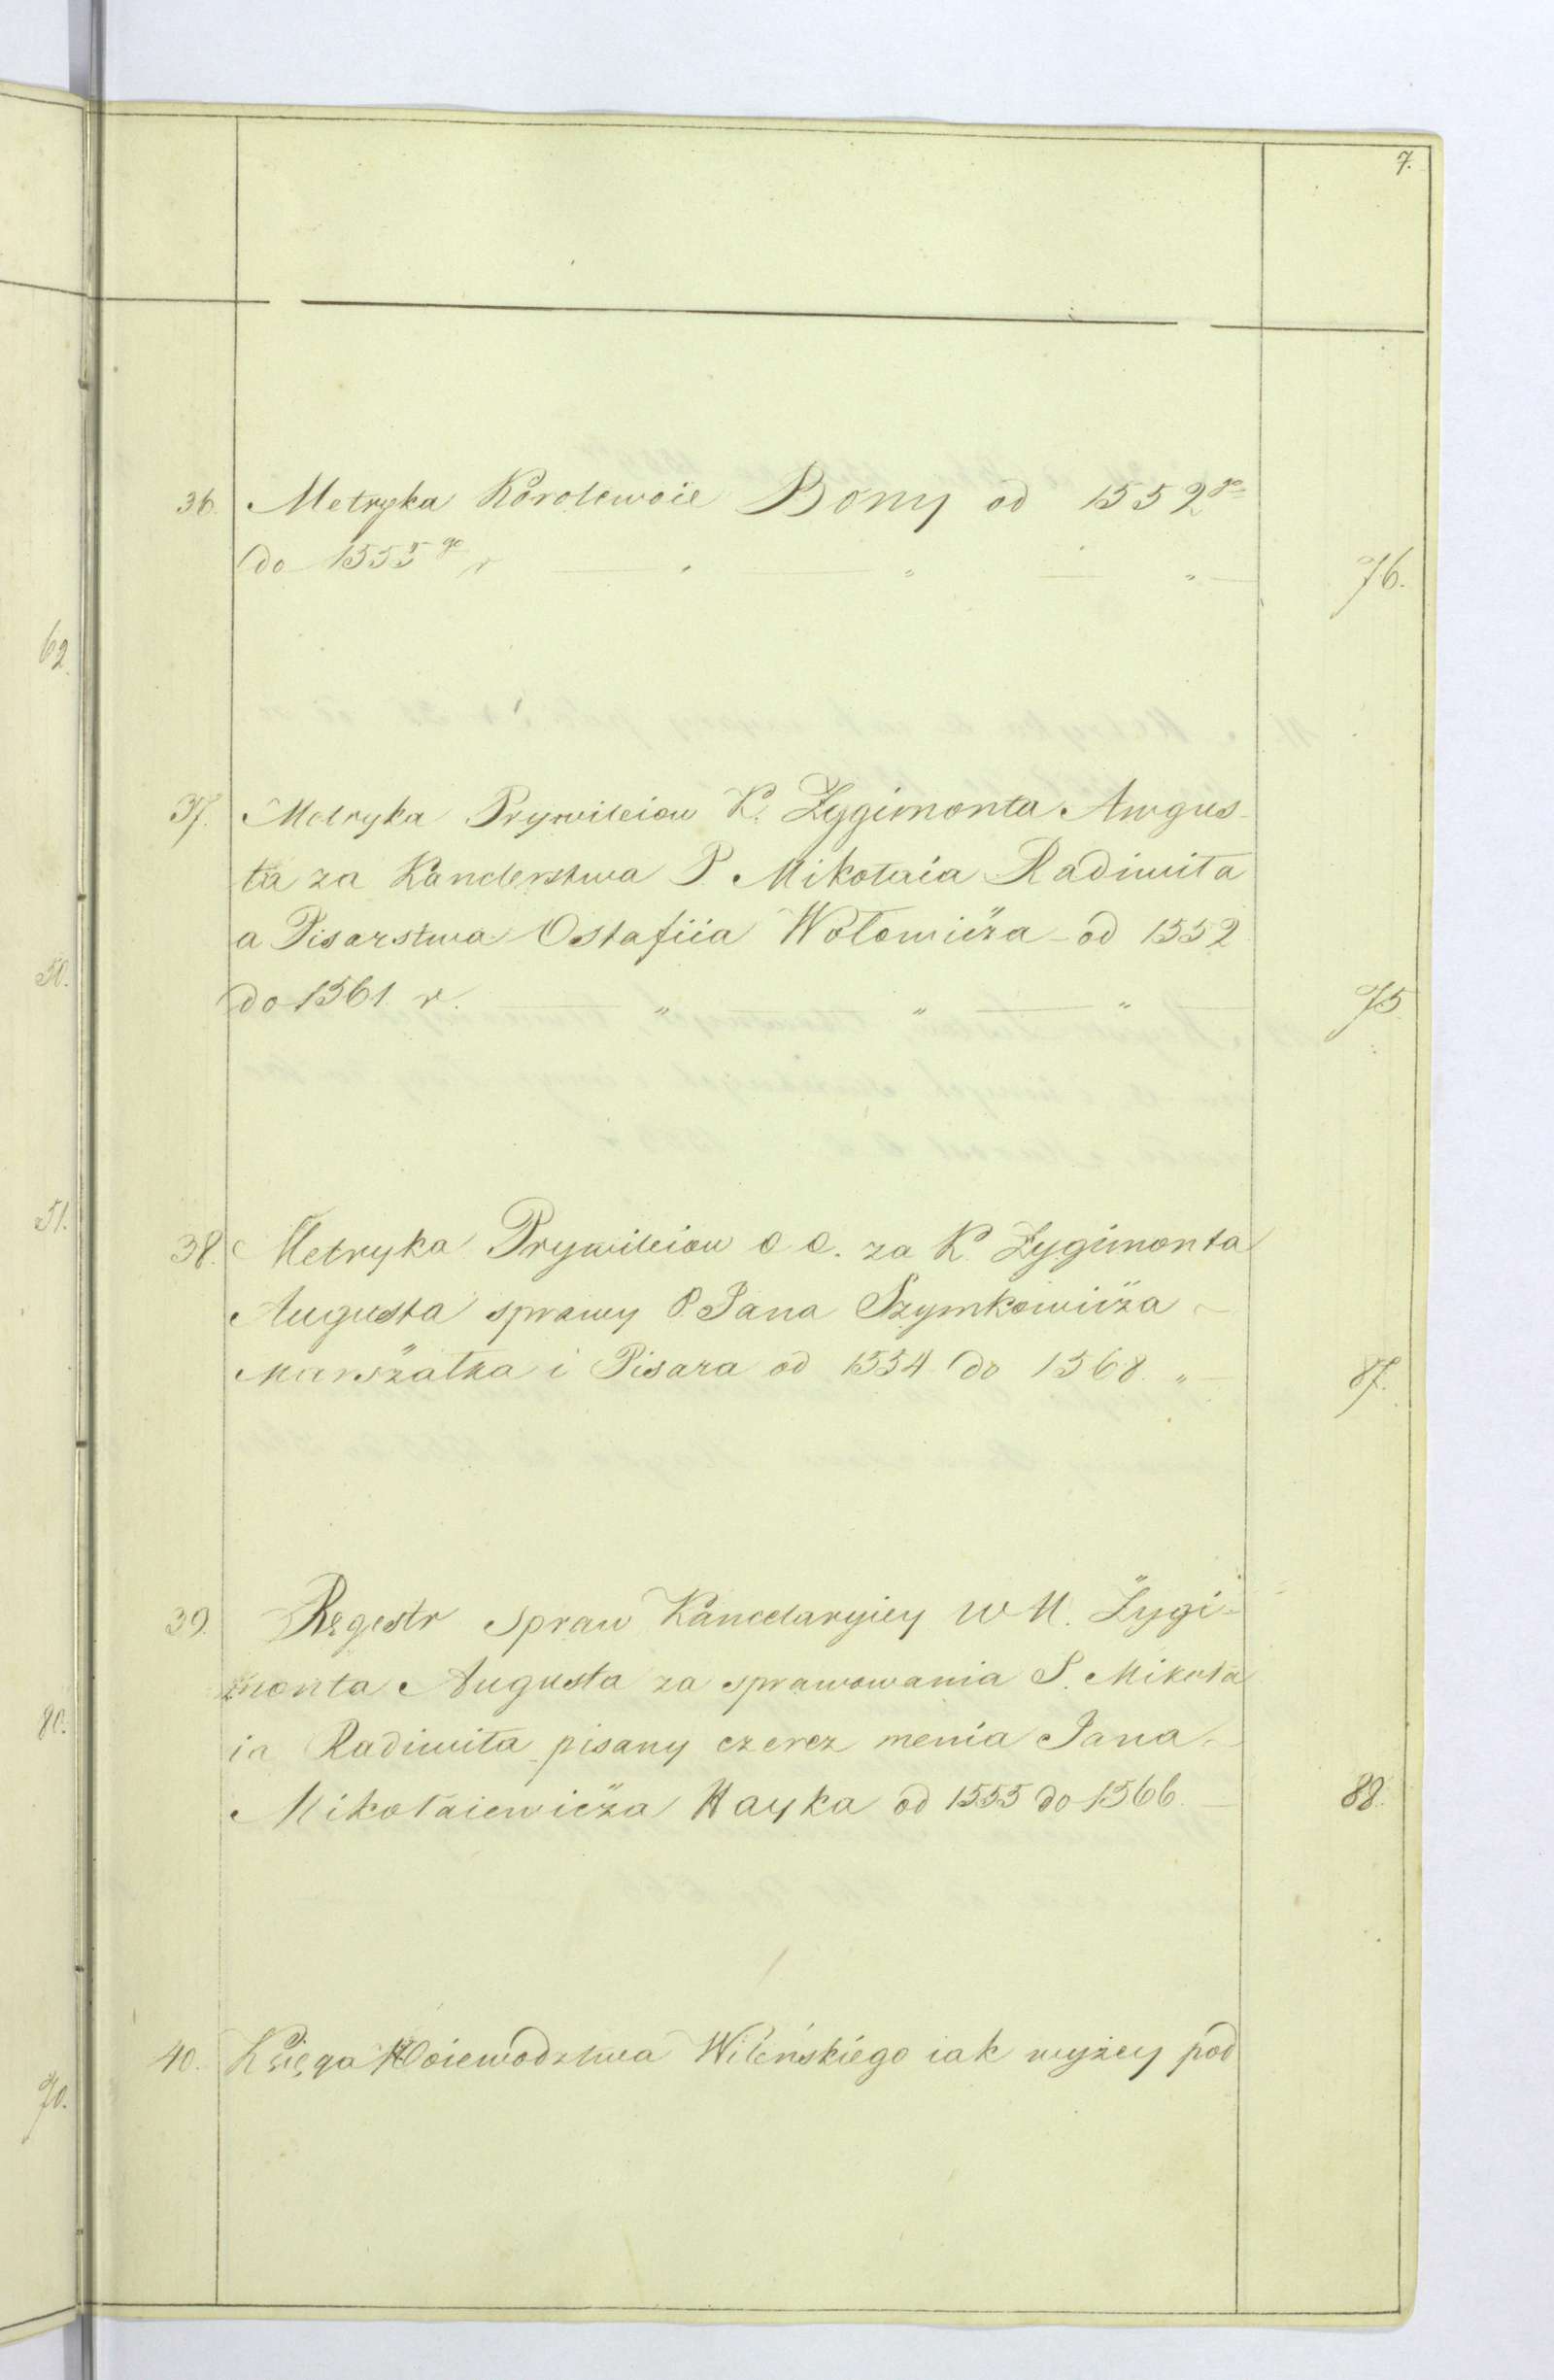 7.
36. Metryka Korolewoie Bony od 1552go
do 1555go r — " — " — " — 76.
37. Metryka Prywileiow K. Zygimonta Awgus-
ta za Kanclerstwa P. Mikołaia Radiwiła
a Pisarstwa Ostafiia Wołowicża od 1552
do 1561 r. — " — " — " — 75
38. Metryka Prywileiow c c. za K. Zygimonta
Augusta sprawy P. Jana Szymkowicża
Marszałka i Pisara od 1554 do 1568. " — 87.
39. Regestr spraw Kancelaryiey W K. Żygi-
monta Augusta za sprawowania P. Mikoła
ia Radiwiła pisany czerez menia Jana
Mikołaiewicża Hayka od 1555 do 1566. — 88.
40. Księga Woiewodztwa Wileńskiego iak wyżey pod
62.
50.
51.
80.
70.